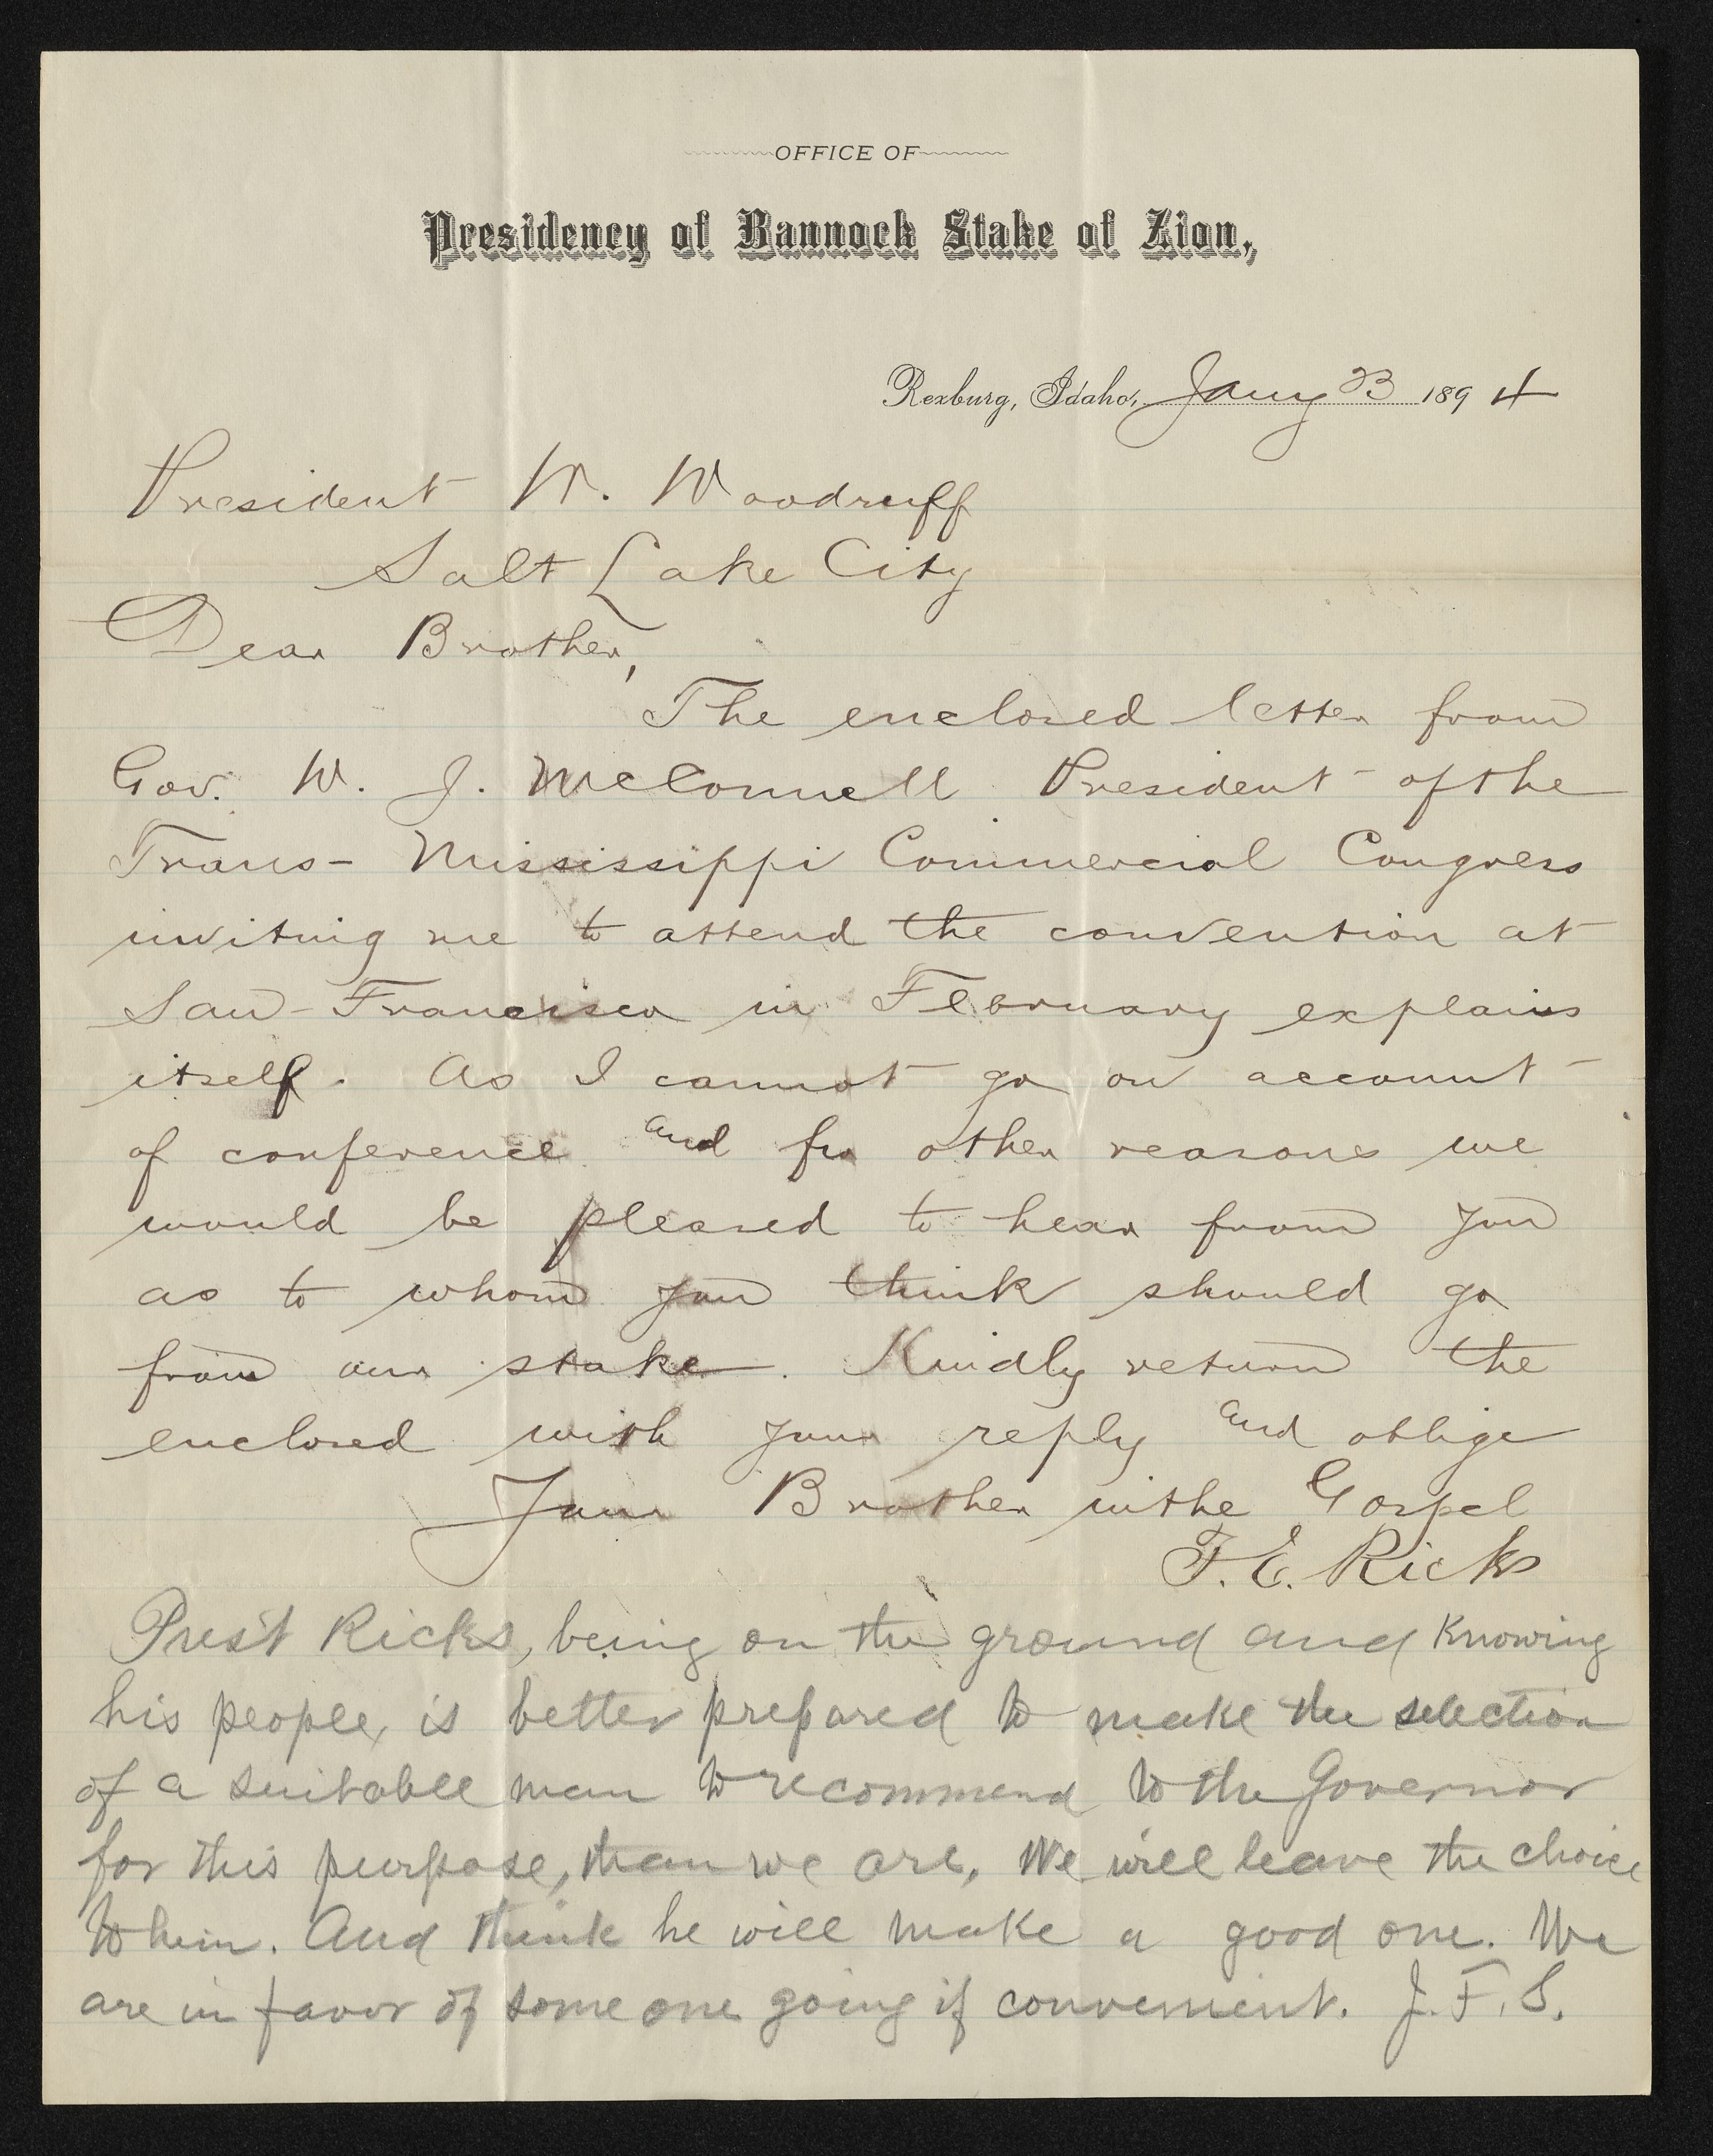 OFFICE OF
Presidency of Bannock Stake of Zion,
Rexburg, Idaho, Jany 23 1894
President W. Woodruff
Salt Lake City
Dear Brother,
The enclosed letter from
Gov. W. J. McConnell President of the
Trans-Mississippi Commercial Congress
inviting me to attend the convention at
San-Francisco in February explains
itself. As I cannot go on account
of conference and for other reasons we
would be pleased to hear from you
as to whom you think should go
from our stake. Kindly return the
enclosed with your reply and oblige
Your Brother in the Gospel
T. E. Ricks
Prest Ricks, being on the ground and knowing
his people, is better prepared to make the selection
of a suitable man to recommend to the Governor
for this purpose, than we are. We will leave the choice
to him. And think he will make a good one. We
are in favor of some one going if convenient. J. F. S.